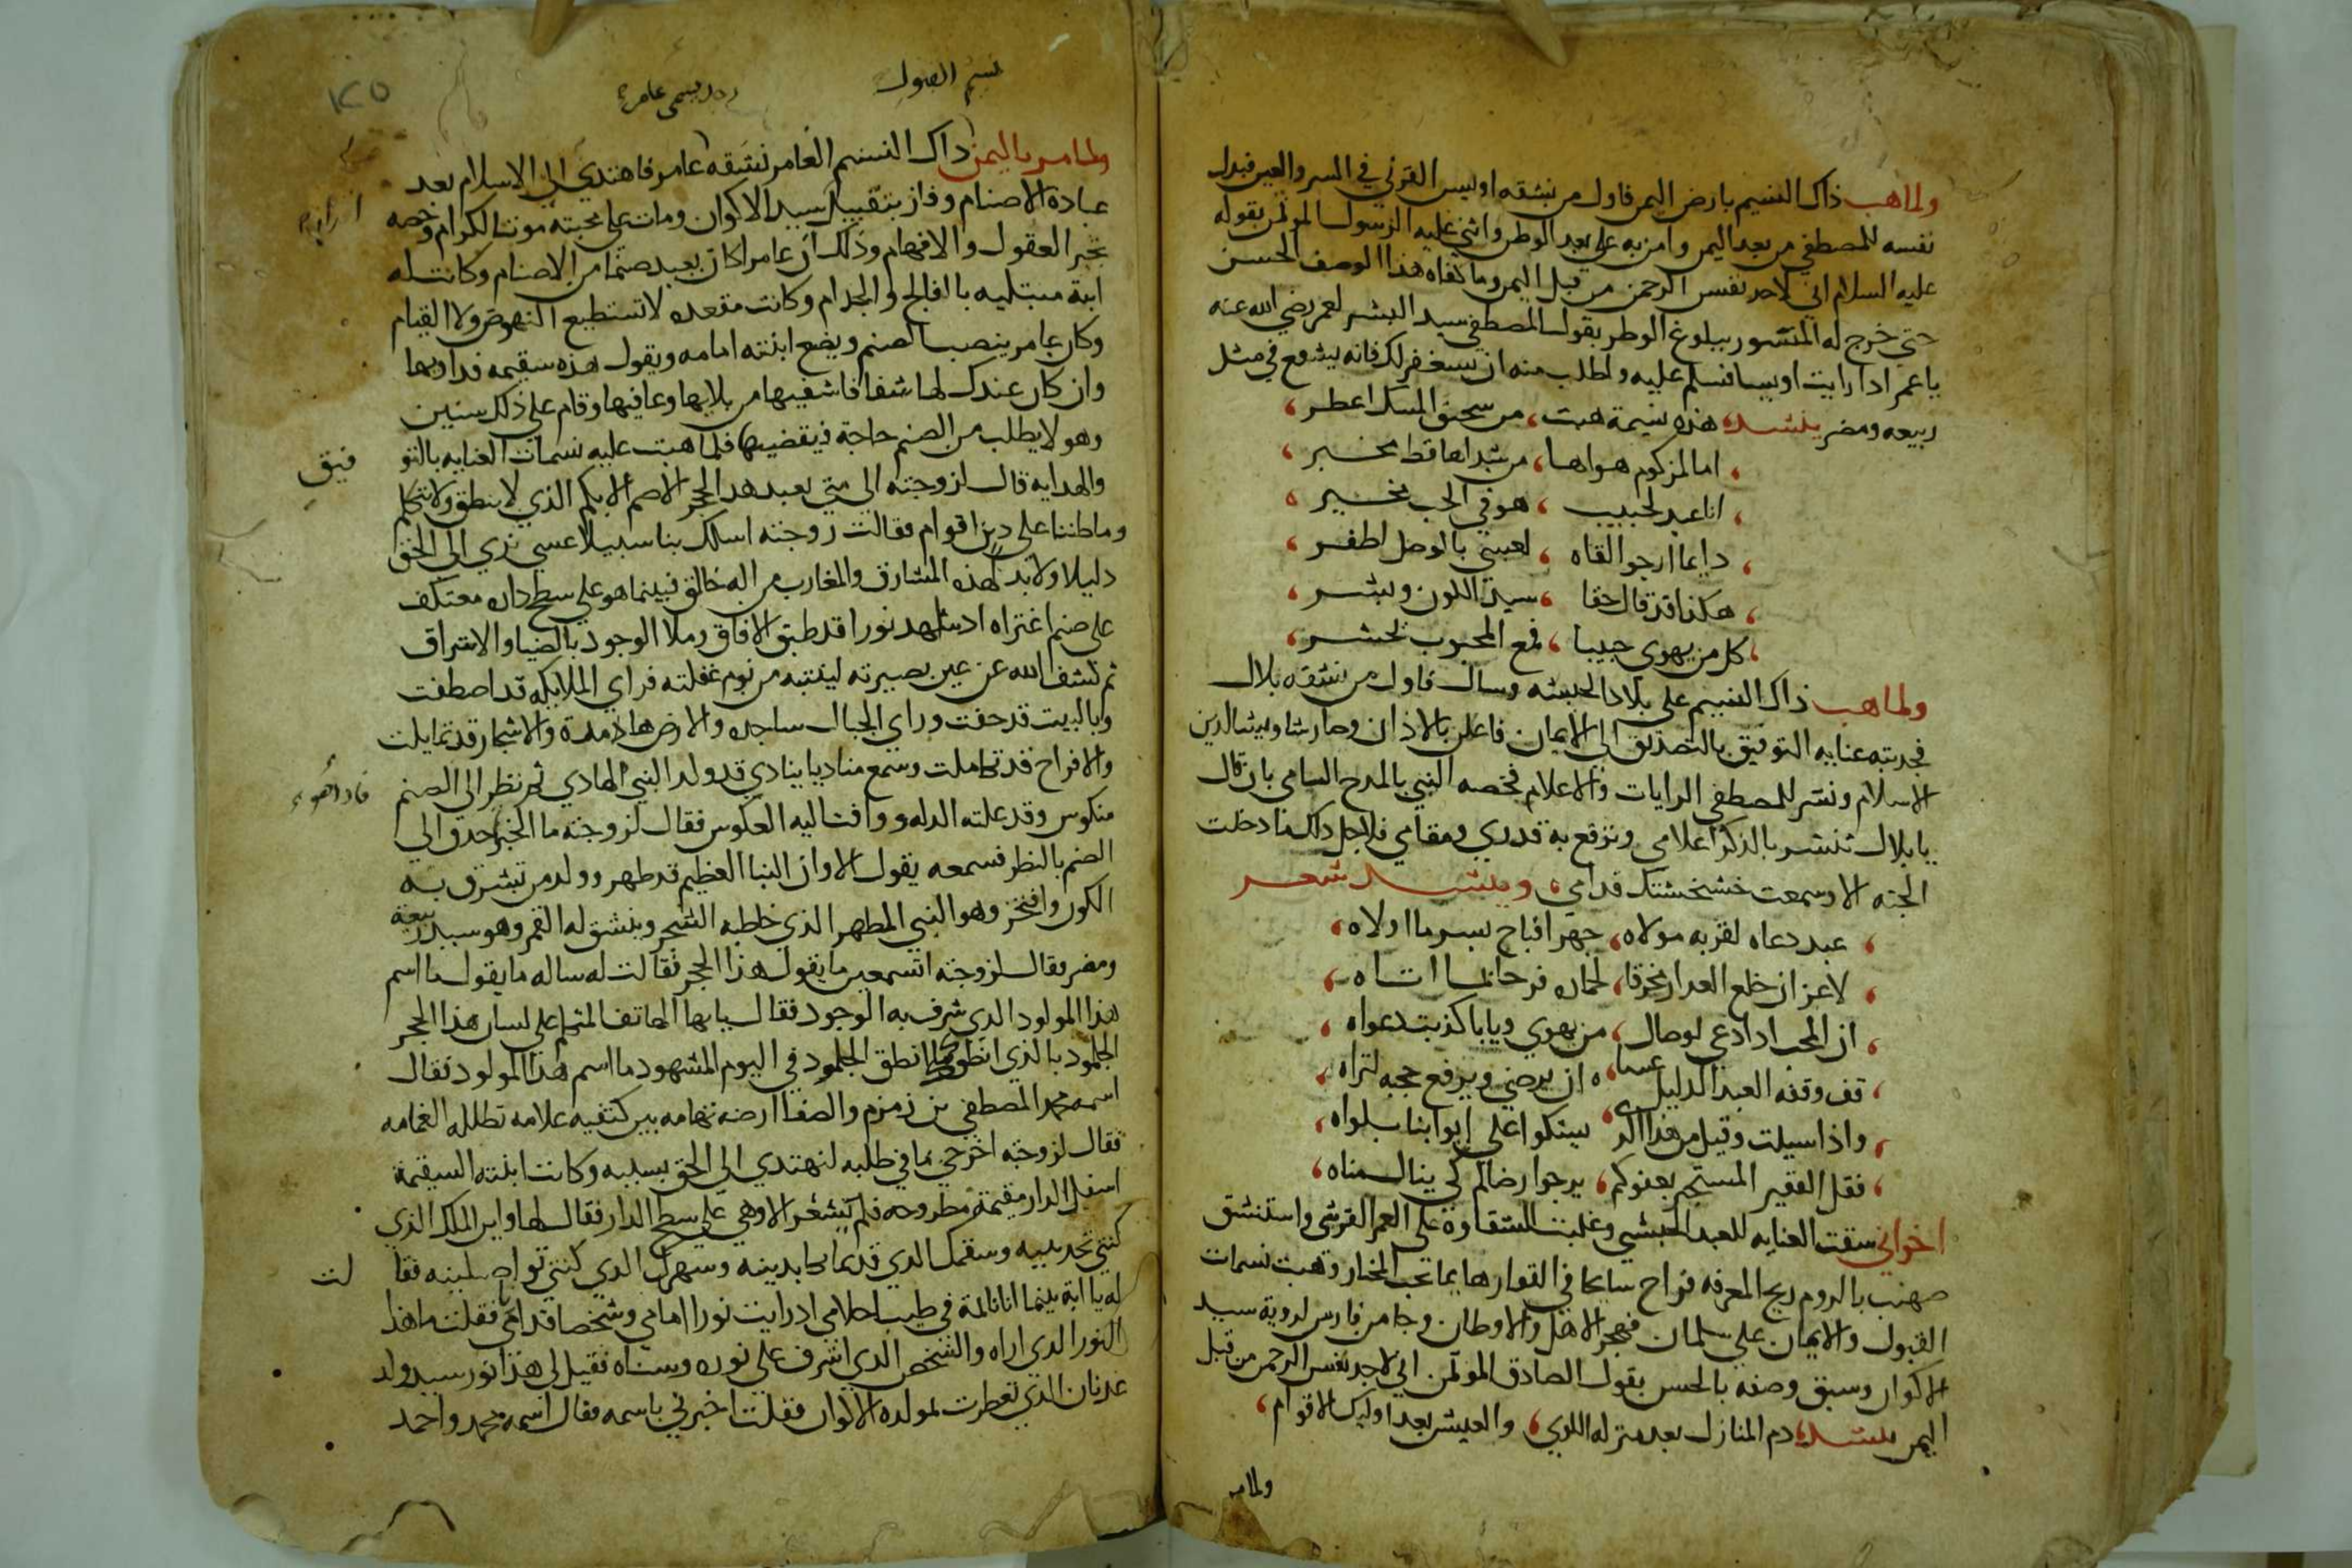 ولما هب ذاك النسيم بارض اليمن فاول من نشقه اويس القرني في السر والعين فبدل
نفسه للمصطفي من بعد اليمن وامن به علي بعد الوطن واثني عليه الرسول المؤتمن بقوله
عليه السلام اني لاجد نفس الرحمن من قبل اليمن وما كفاه هذا الوصف الحسن
حتي خرج له المنشور ببلوغ الوطر بقول المصطفي سيد البشر لعمر رضي الله عنه
يا عمر اذا رايت اويسا فسلم عليه واطلب منه ان يستغفر لك فانه يشفع في مثل
ربيعه ومضر ينشد هذه نسيمة هبت، من سحيق المسك اعطر،
، اما المزكوم هواها، من شداها قط يخبر،
، انا عبد لحبيب ، هو في الحب بخير ،
، دايما ارجو القاه ، لعيني بالوصل اظفر ،
، هكذا قد قال حقا ، سيد الكون وبشر ،
، كل من يهوي حبيبا ، فمع المحبوب يحشر ،
ولما هب ذاك النسيم علي بلاد الحبشه وسال فاول من نشقه بلال
فجدبته عنايه التوفيق بالتصديق الي الايمان فاعلن بالاذان وصار شاويش الدين
الاسلام ونشر للمصطفي الرايات والاعلام فخصه النبي بالمدح السامي بان قال
يا بلال تنشر بالذكر اعلامي وترفع به قدري ومقامي فلاجل ذلك ما دخلت
الجنه الا وسمعت خشخشتك قدامي، وينشد شعر
، عبد دعاه لقربه مولاه، جهرا فباح بسر ما اولاه،
، لا عز ان خلع العدار تخرقا، فرحا لما اتاه ،
، ان المحب اذا دعي لوصال، من يهوي ويابا كذبت دعواه ،
، قف وقفه العبد الدليل عساه، ان يرضي ويرفع حجبه لتراه ،
، واذا سيلت وقيل من هذا الدي، يشكوا علي ابوابنا بلواه،
، فقل الفقير المستجير بعفوكم، يرجوا رضاكم كي ينال مناه،
اخواني سبقت العنايه للعبد الحبشي وغلبت الشقاوة علي العم القرشي واستنشق
صهيب بالروم ريح المعرفه فراح سايحا في القفار هايما بحب المختار وهبت نسمات
القبول والايمان علي سلمان فهجر الاهل والاوطان وجا من فارس لروية سيد
الاكوان وسبق وصفه بالحسن بقول الصادق المؤتمن اني لاجد نفس الرحمن من قبل
اليمن ينشد، دم المنازل بعد منزله اللوي، والعيش بعد اوليك الاقوام،
ولما مر
نسيم القبول
رجل يسمى عامر
١٢٥
ولما مر باليمن ذاك النسيم العامر نشقه عامر فاهتدي الي الاسلام بعد
عبادة الاصنام وفاز بتقبيل سيد الاكوان ومات علي محبته موت الكرام وخصه
تحير العقول والافهام وذلك ان عامرا كان يعبد صنما من الاصنام وكانت له
ابنة مبتليه بالفالج والجدام وكانت مقعده لا تستطيع النهوض ولا القيام
وكان عامر ينصب الصنم ويضع ابنته امامه ويقول هذه سقيمه فداويها
وان كان عندك لها شفا فاشفيها من بلايها وعافيها وقام علي ذلك سنين
وهو لا يطلب من الصنم حاجة فيقضيها فلما هبت عليه نسمات العنايه بالتو فيق
والهدايه قال لزوجته الي متي نعبد هذا الحجر الاصم الابكم الذي لا ينطق ولا يتكلم
وما طننا علي دين اقوام فقالت زوجته اسلك بنا سبيلا عسي نري الي الحق
دليلا ولا بد لهذه المشارق والمغارب من اله خالق فبينما هو علي سطح داره معتكف
علي صنم اغتراه اد شاهد نورا قد طبق الافاق وملا الوجود بالضيا والاشراق
ثم كشف الله عن عين بصيرته لينتبه من نوم غفلته فراي الملايكه قد اصطفت
وبالبيت قد حفت وراي الجبال ساجده والارض هامدة والاشجار قد تمايلت
والافراح قد تكاملت وسمع مناديا ينادي قد ولد النبي الهادي ثم نظر الي الصنم فاذا هو
منكوس وقد علته الدله ووافت اليه العكوس فقال لزوجته ما الخبر احدق الي
الصنم بالنظر فسمعه يقول الا وان النبا العظيم قد ظهر وولد من تشرف به
الكون وافتخر وهو النبي المطهر الذي خاطبه الشجر وينشق له القمر وهو سيد ربيعة
ومضر فقال لزوجته اتسمعين ما يقول هذا الحجر فقالت له ساله ما يقول ما اسم
هذا المولود الدي شرف به الوجود فقال يا ايها الهاتف المتكلم علي لسان هذا الحجر
الجلمود بالذي انطق الجلمود في اليوم المشهود ما اسم هذا المولود فقال
اسمه محمد المصطفي بن زمزم والصفا ارضه تهامه بين كتفيه علامه تظلله الغمامه
فقال لزوجته اخرجي بنا في طلبه لنهتدي الي الحق بسببه وكانت ابنته السقيمة
اسفل الدار مقيمة مطروحه فلم يشعر الا وهي علي سطح الدار فقال لها واين المك الذي
كنتي تجديه وسقمك الدي قديما تكابدينه وسهرك الدي كنتي تواصلينه فقا لت
له يا ابة بينما انا نايمة في طيب احلامي اد رايت نورا امامي وشخصا قدامي فقلت ما هذا
النور الدي اراه والشخص الدي اشرف علي نوره وسناه فقيل لي هذا نور سيد ولد
عدنان الذي تعطرت لمولده الاكوان فقلت اخبرني باسمه فقال اسمه محمد واحمد